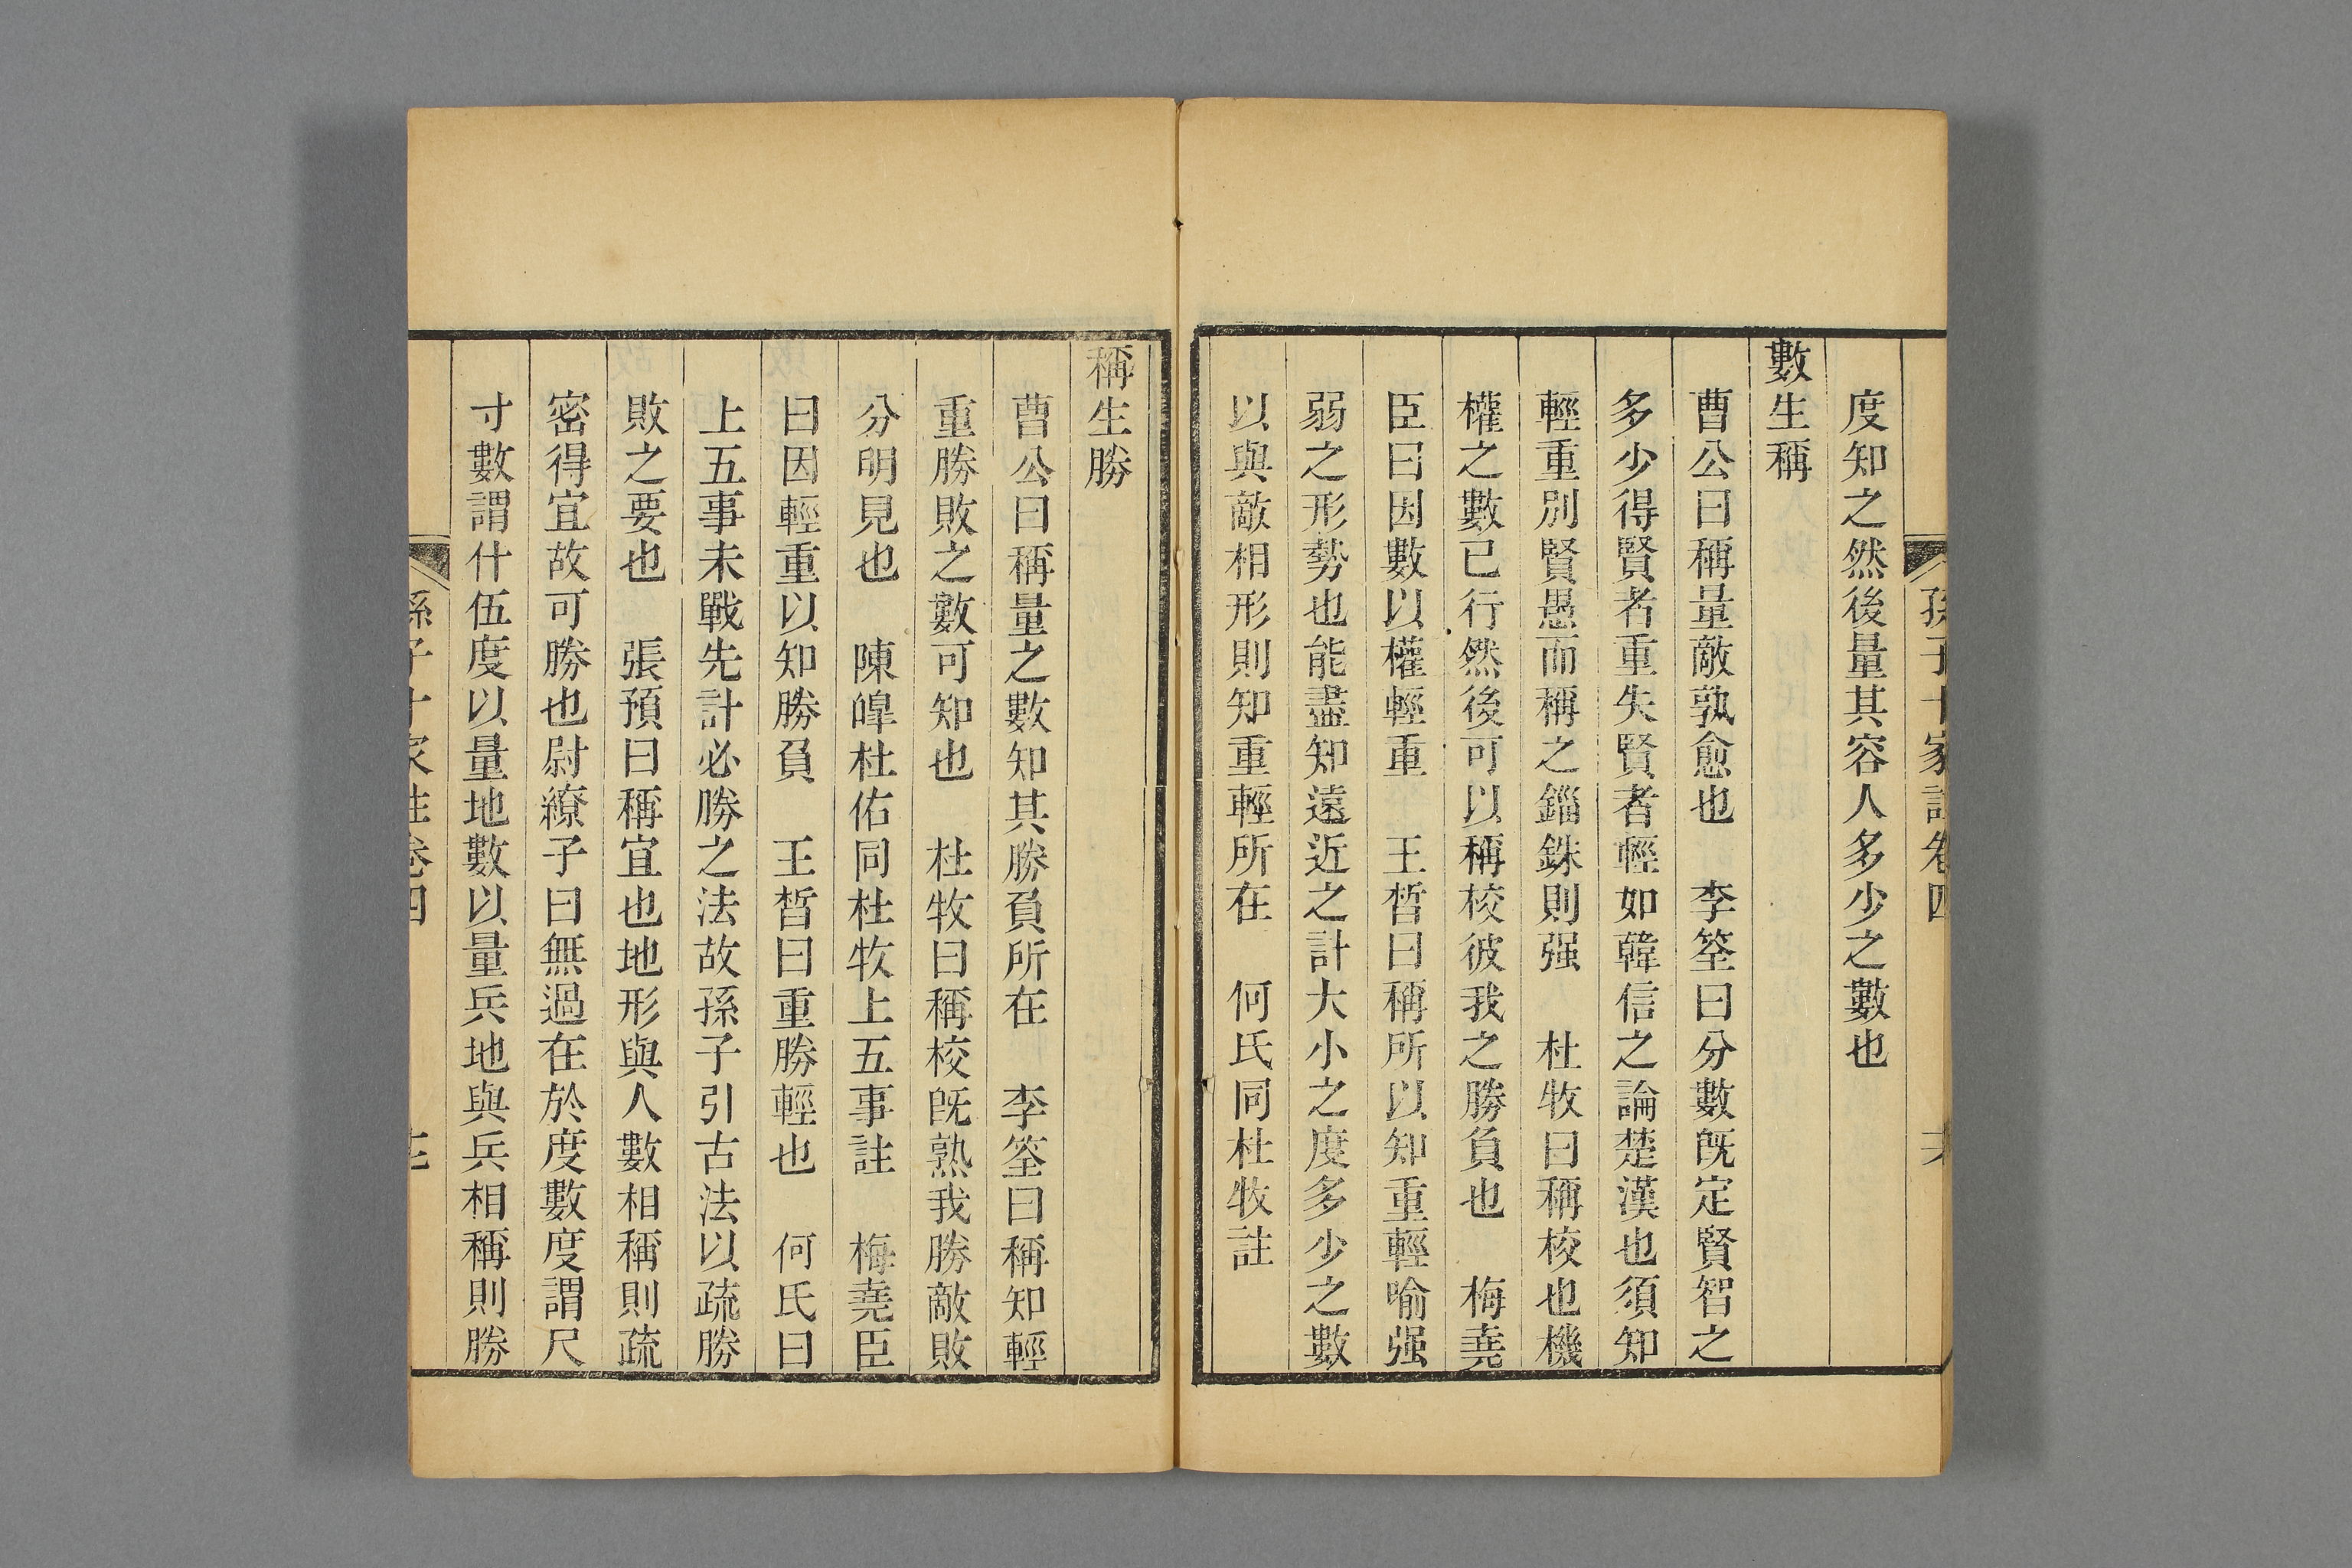 孫子十家註卷四
度知之然後量其容人多少之數也
數生稱
曹公曰稱量敵孰愈也　李筌曰分數旣定賢智之
多少得賢者重失賢者輕如韓信之論楚漢也須知
輕重別賢愚而稱之錙銖則强　杜牧曰稱校也機
權之數已行然後可以稱校彼我之勝負也　梅堯
臣曰因數以權輕重　王晳曰稱所以知重輕喻强
弱之形勢也能盡知遠近之計大小之度多少之數
以與敵相形則知重輕所在　何氏同杜牧註
稱生勝
曹公曰稱量之數知其勝負所在　李筌曰稱知輕
重勝敗之數可知也　杜牧曰稱校旣熟我勝敵敗
分明見也　陳皥杜佑同杜牧上五事註　梅堯臣
曰因輕重以知勝負　王晳曰重勝輕也　何氏曰
上五事未戰先計必勝之法故孫子引古法以疏勝
敗之要也　張預曰稱宜也地形與人數相稱則疏
密得宜故可勝也尉繚子曰無過在於度數度謂尺
寸數謂什伍度以量地數以量兵地與兵相稱則勝
孫子十家註卷四